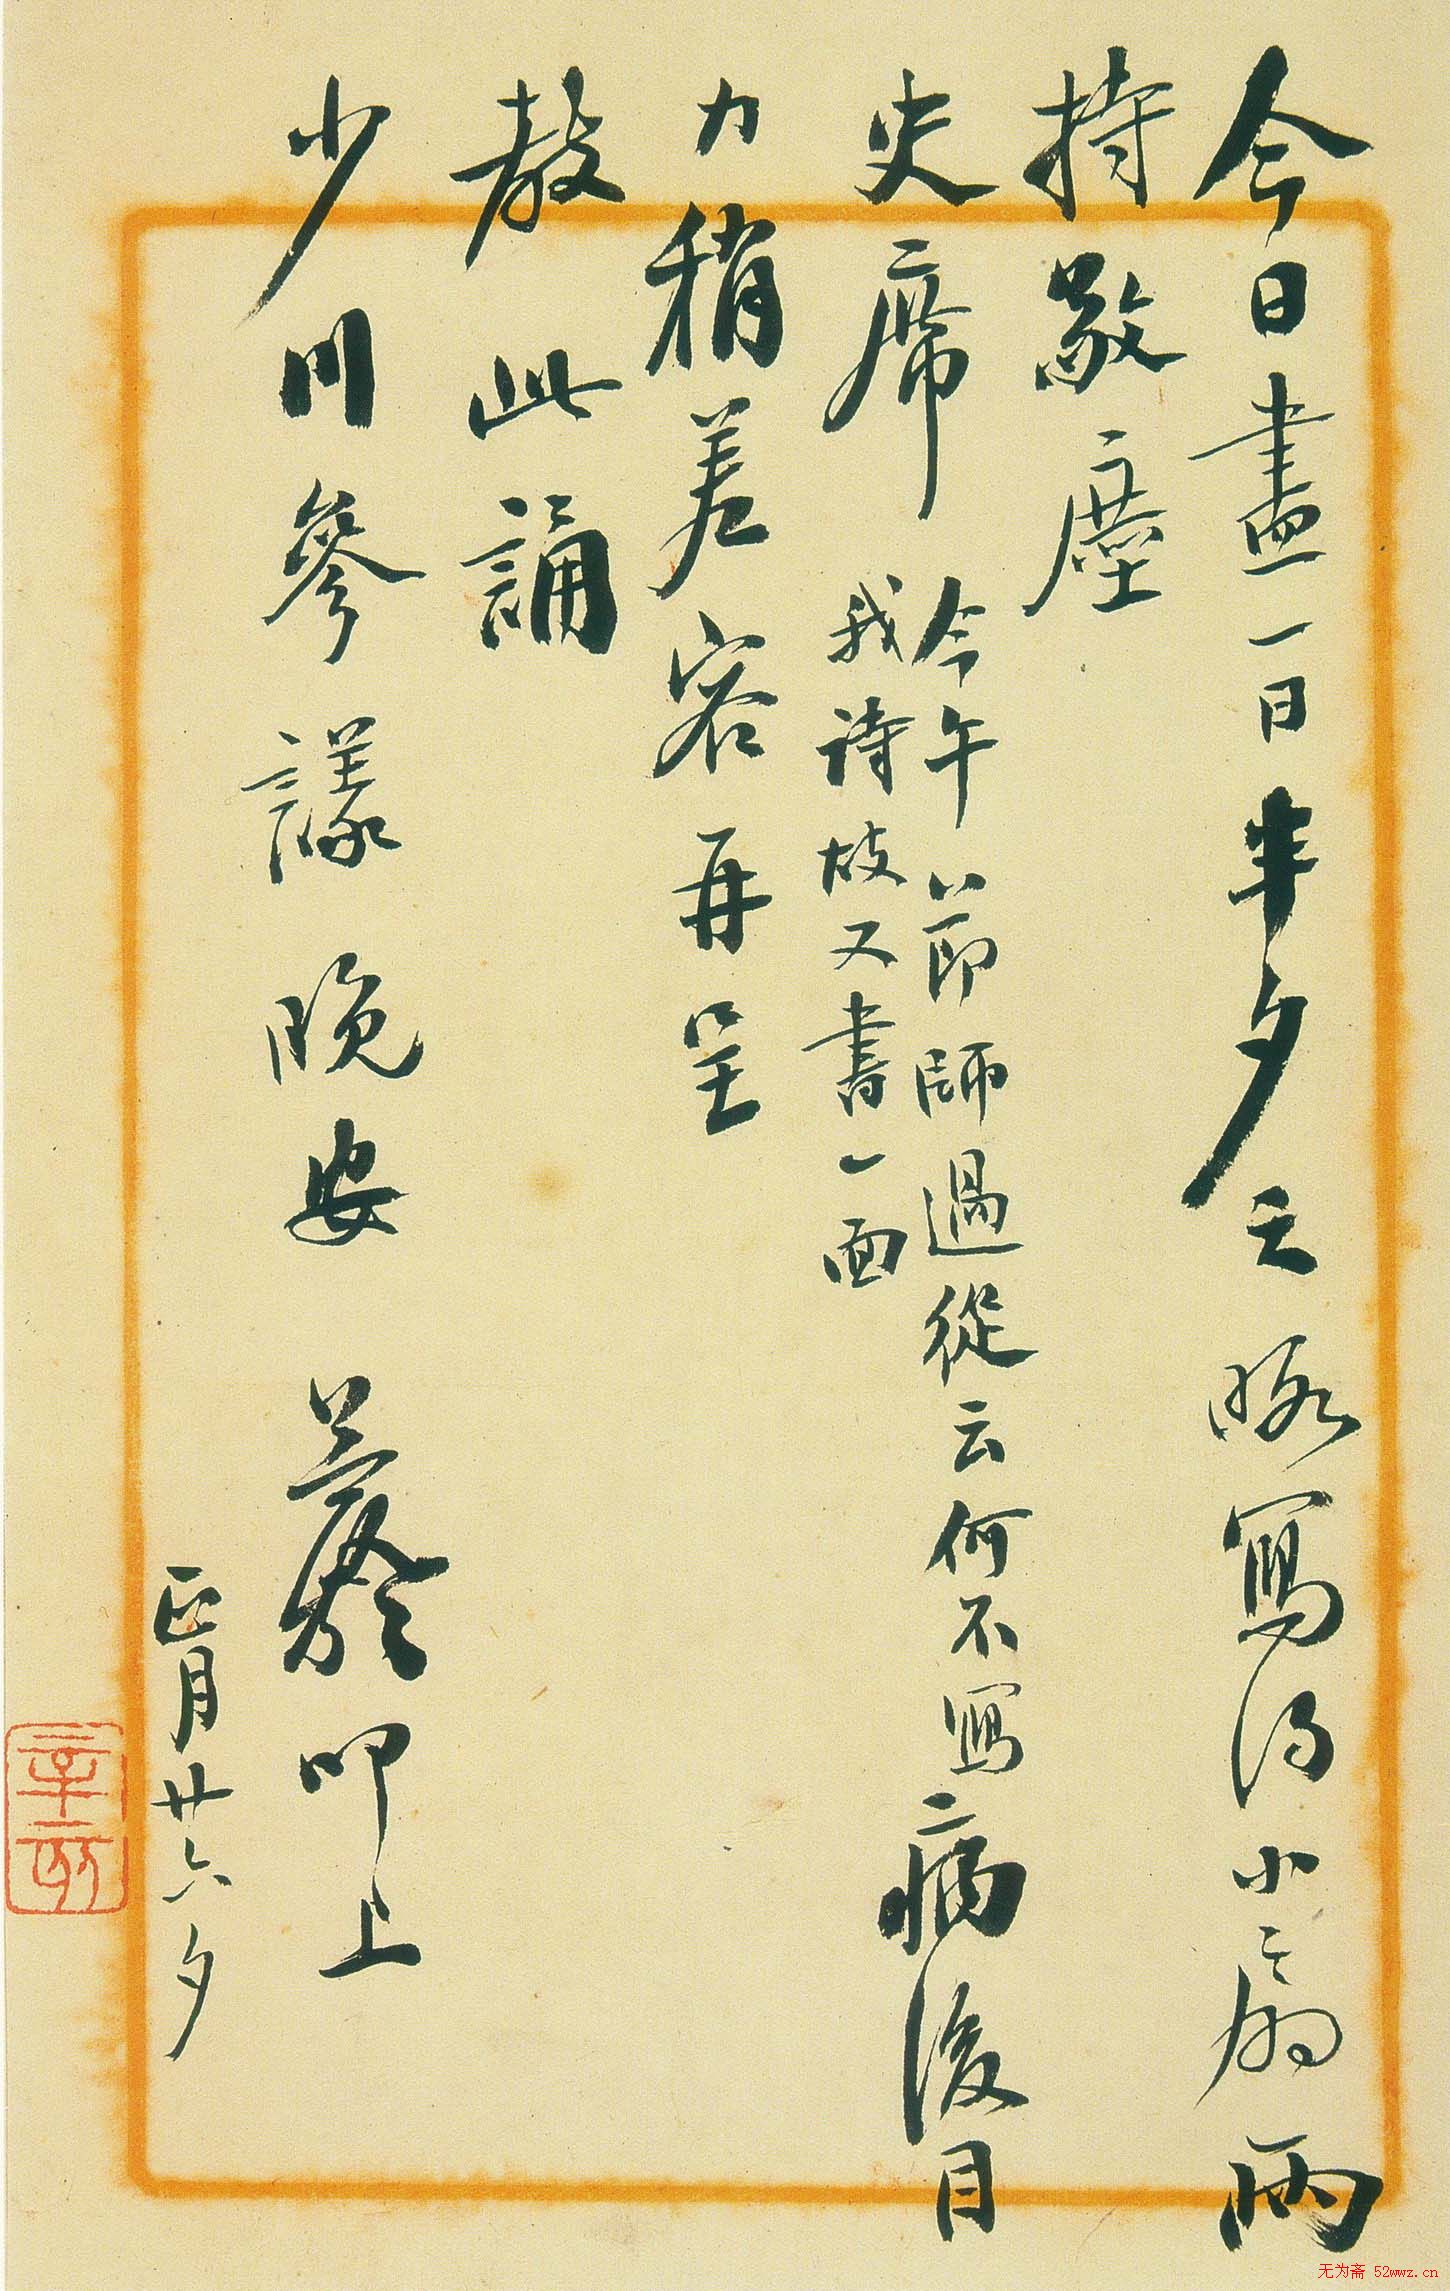 今日畫一日半夕之眠寫得小扇兩
持敬塵
史席 今午節師過從云何不寫
我詩故又書一面
病後目
力稍差容再呈
教此誦
少川參議晚安 蔡叩上
正月廿六夕
无为斋 52wwz.cn